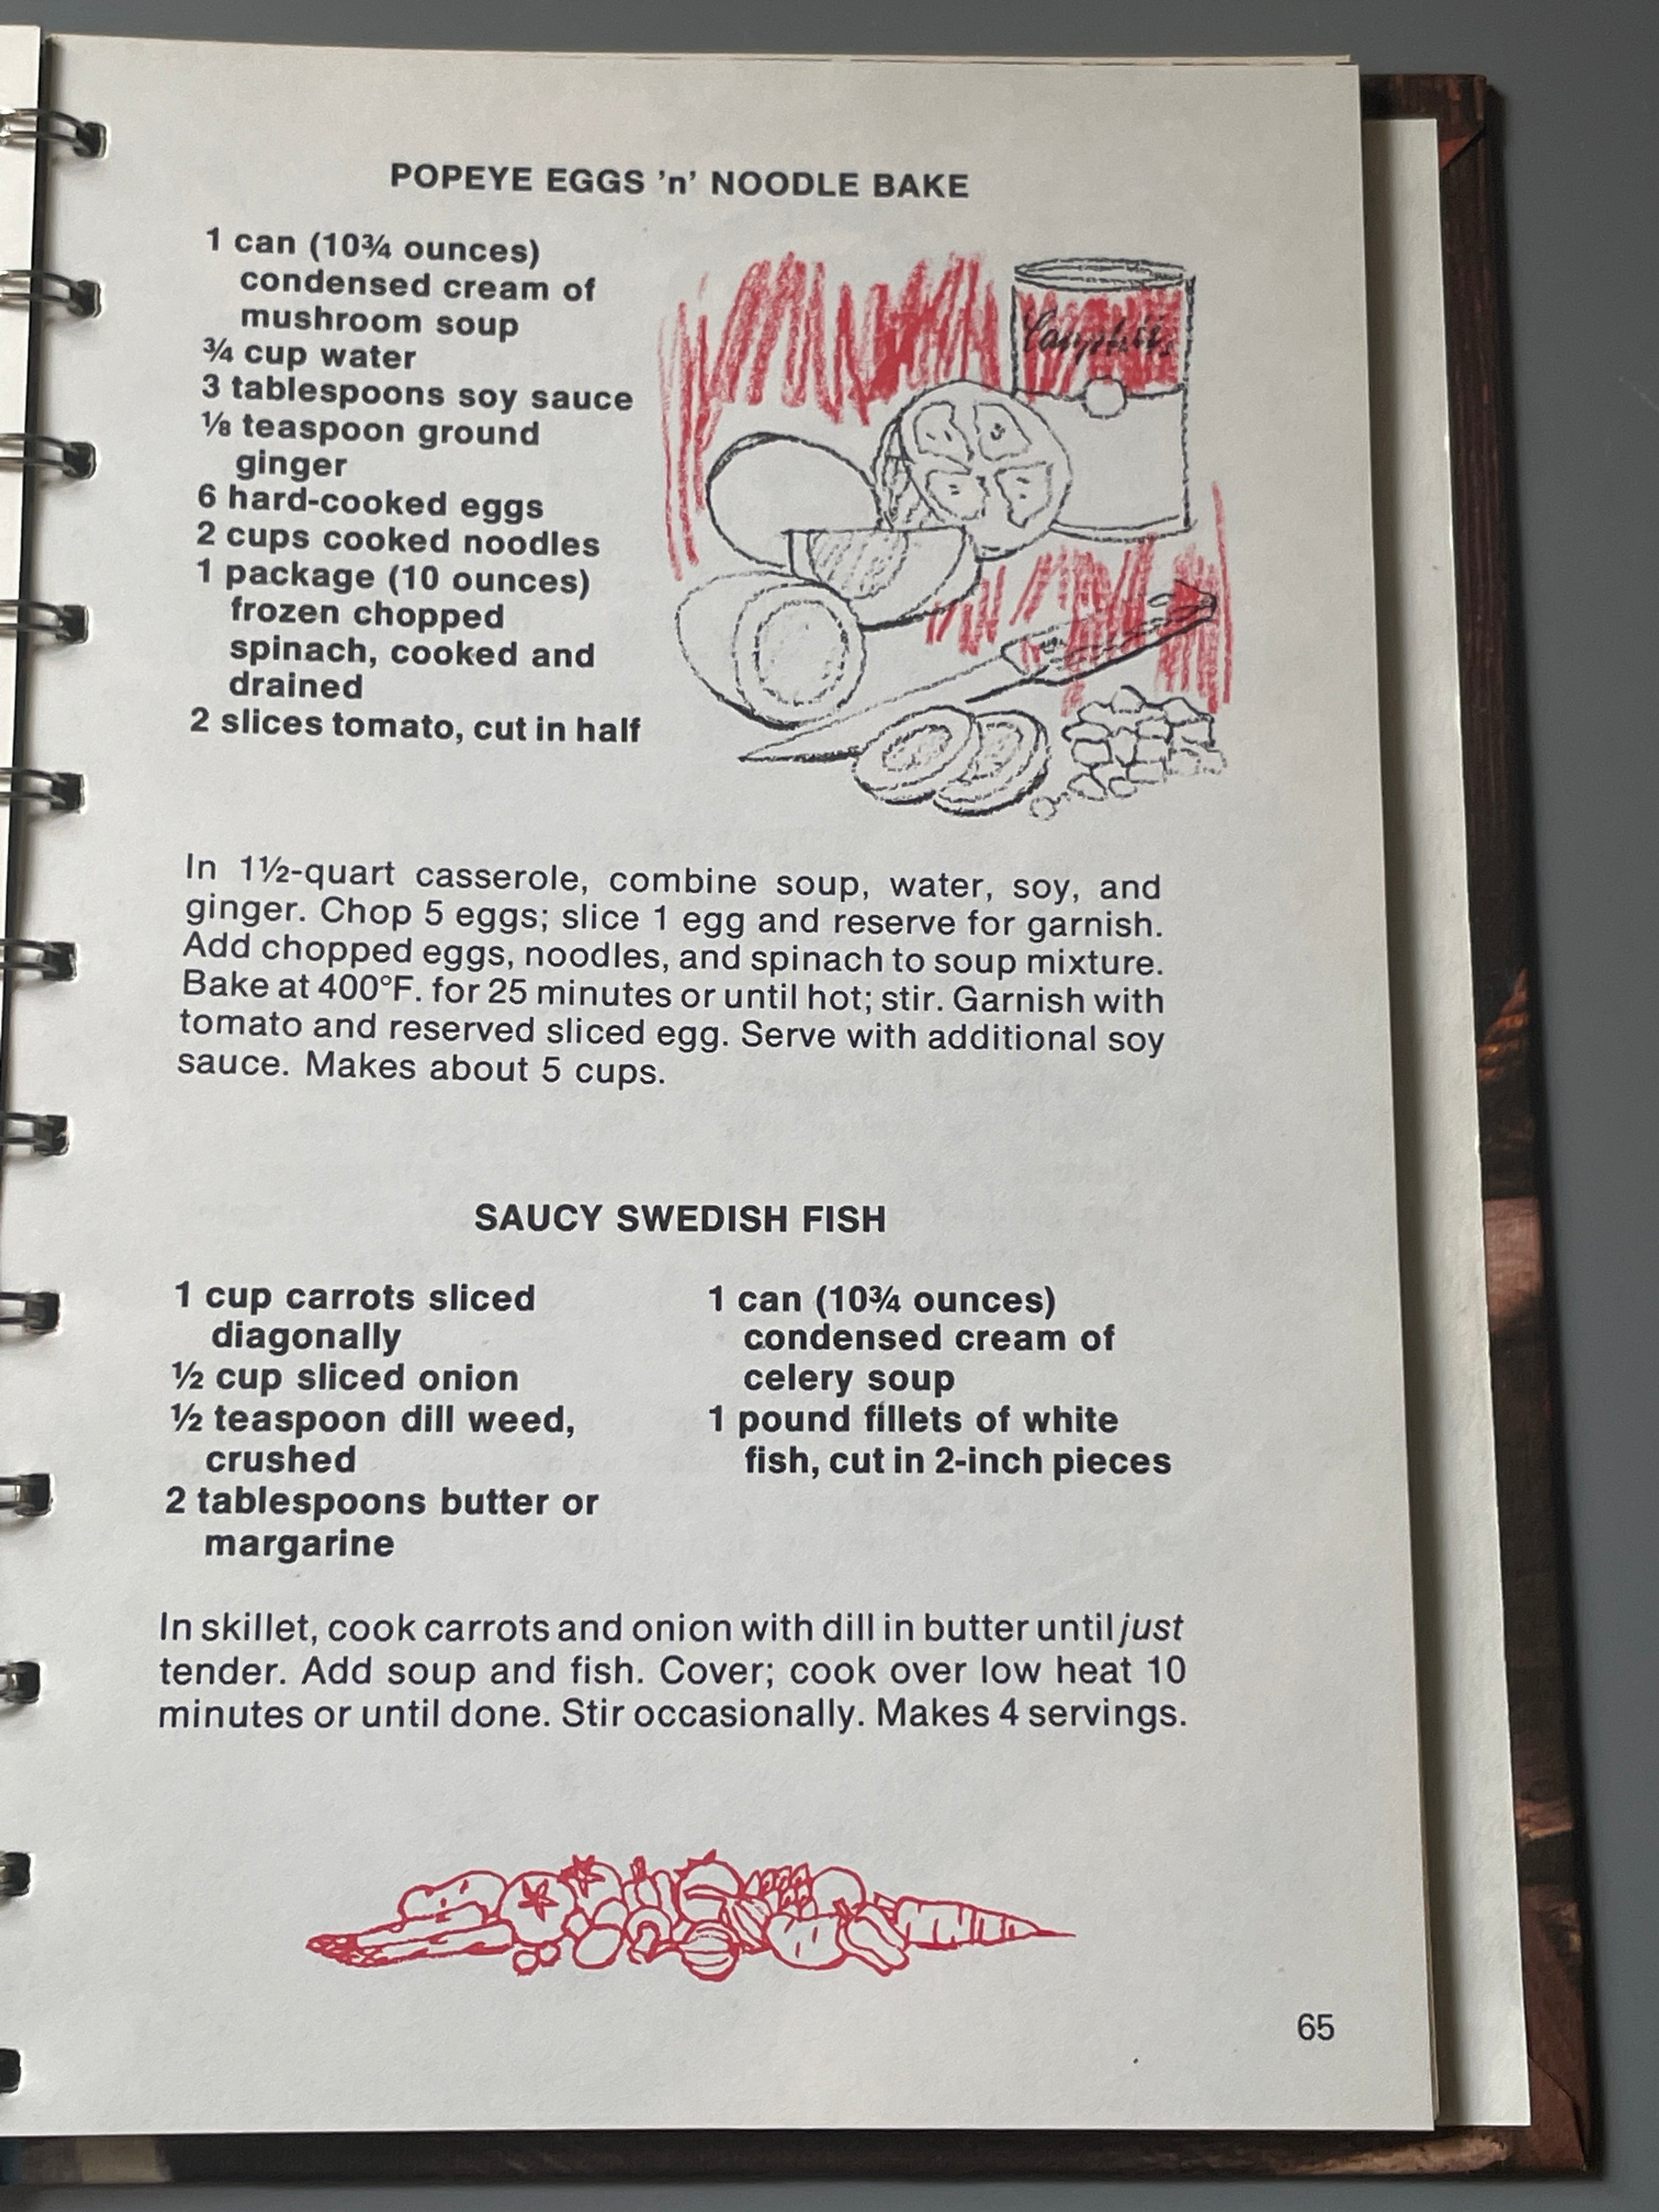 POPEYE EGGS 'n' NOODLE BAKE
1 can (10¾ ounces)
condensed cream of
mushroom soup
¾ cup water
3 tablespoons soy sauce
⅛ teaspoon ground
ginger
6 hard-cooked eggs
2 cups cooked noodles
1 package (10 ounces)
frozen chopped
spinach, cooked and
drained
2 slices tomato, cut in half
Campbell's
In 1½-quart casserole, combine soup, water, soy, and
ginger. Chop 5 eggs; slice 1 egg and reserve for garnish.
Add chopped eggs, noodles, and spinach to soup mixture.
Bake at 400°F. for 25 minutes or until hot; stir. Garnish with
tomato and reserved sliced egg. Serve with additional soy
sauce. Makes about 5 cups.
SAUCY SWEDISH FISH
1 cup carrots sliced
diagonally
½ cup sliced onion
½ teaspoon dill weed,
crushed
2 tablespoons butter or
margarine
1 can (10¾ ounces)
condensed cream of
celery soup
1 pound fillets of white
fish, cut in 2-inch pieces
In skillet, cook carrots and onion with dill in butter until just
tender. Add soup and fish. Cover; cook over low heat 10
minutes or until done. Stir occasionally. Makes 4 servings.
65